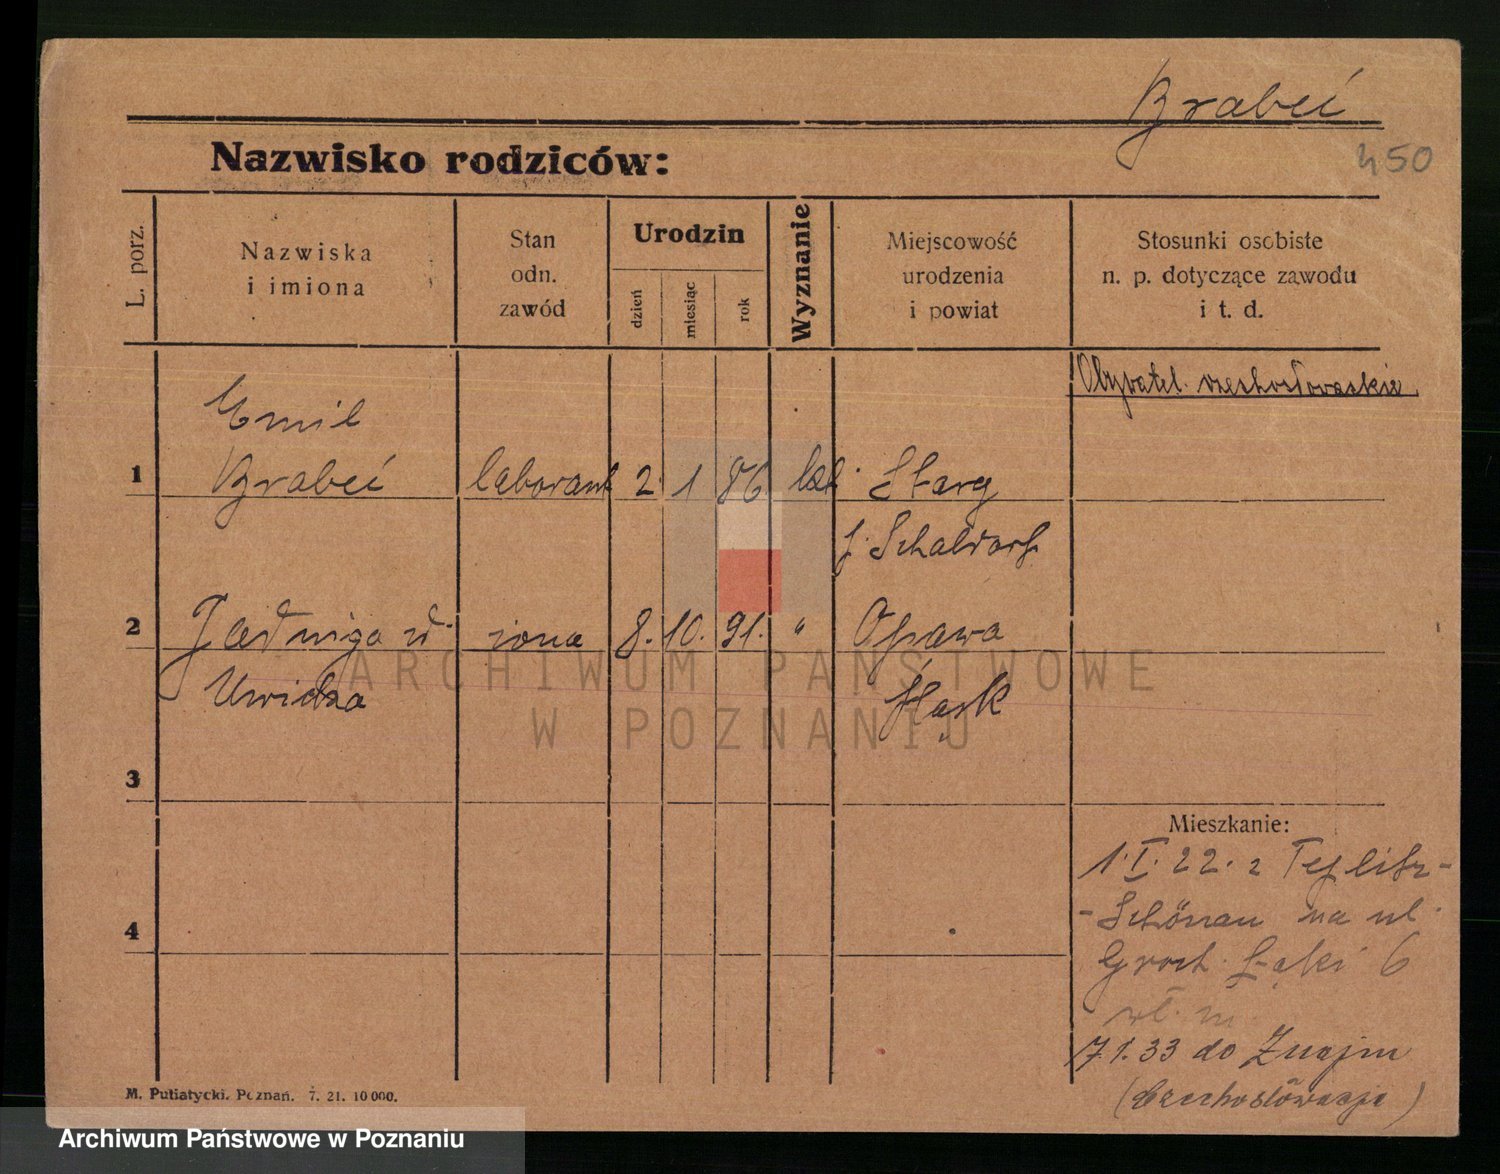 Brabeć
Nazwisko rodziców:
450
L. porz.
Nazwiska
i imiona
Stan
odn.
zawód
Urodzin
dzień
miesiąc
rok
Wyznanie
Miejscowość
urodzenia
i powiat
Stosunki osobiste
n. p. dotyczące zawodu
i t. d.
Obywatel. czechosłowackie
Emil
1 Brabeć laborant 2. 1 86 kat. Starg
f. Schaldorf
2 Jadwiga ur. żona 8. 10. 91. " Opawa
Uwidza Śląsk
3
Mieszkanie:
1.I.22. z Teplitz-
-Schönau na ul.
4
Groch. Łąki 6
wł. m.
7.1.33 do Znajm
(Czechosłowacja)
M. Putiatycki. Poznań. 7. 21. 10 000.
ARCHIWUM PAŃSTWOWE
W POZNANIU
Archiwum Państwowe w Poznaniu